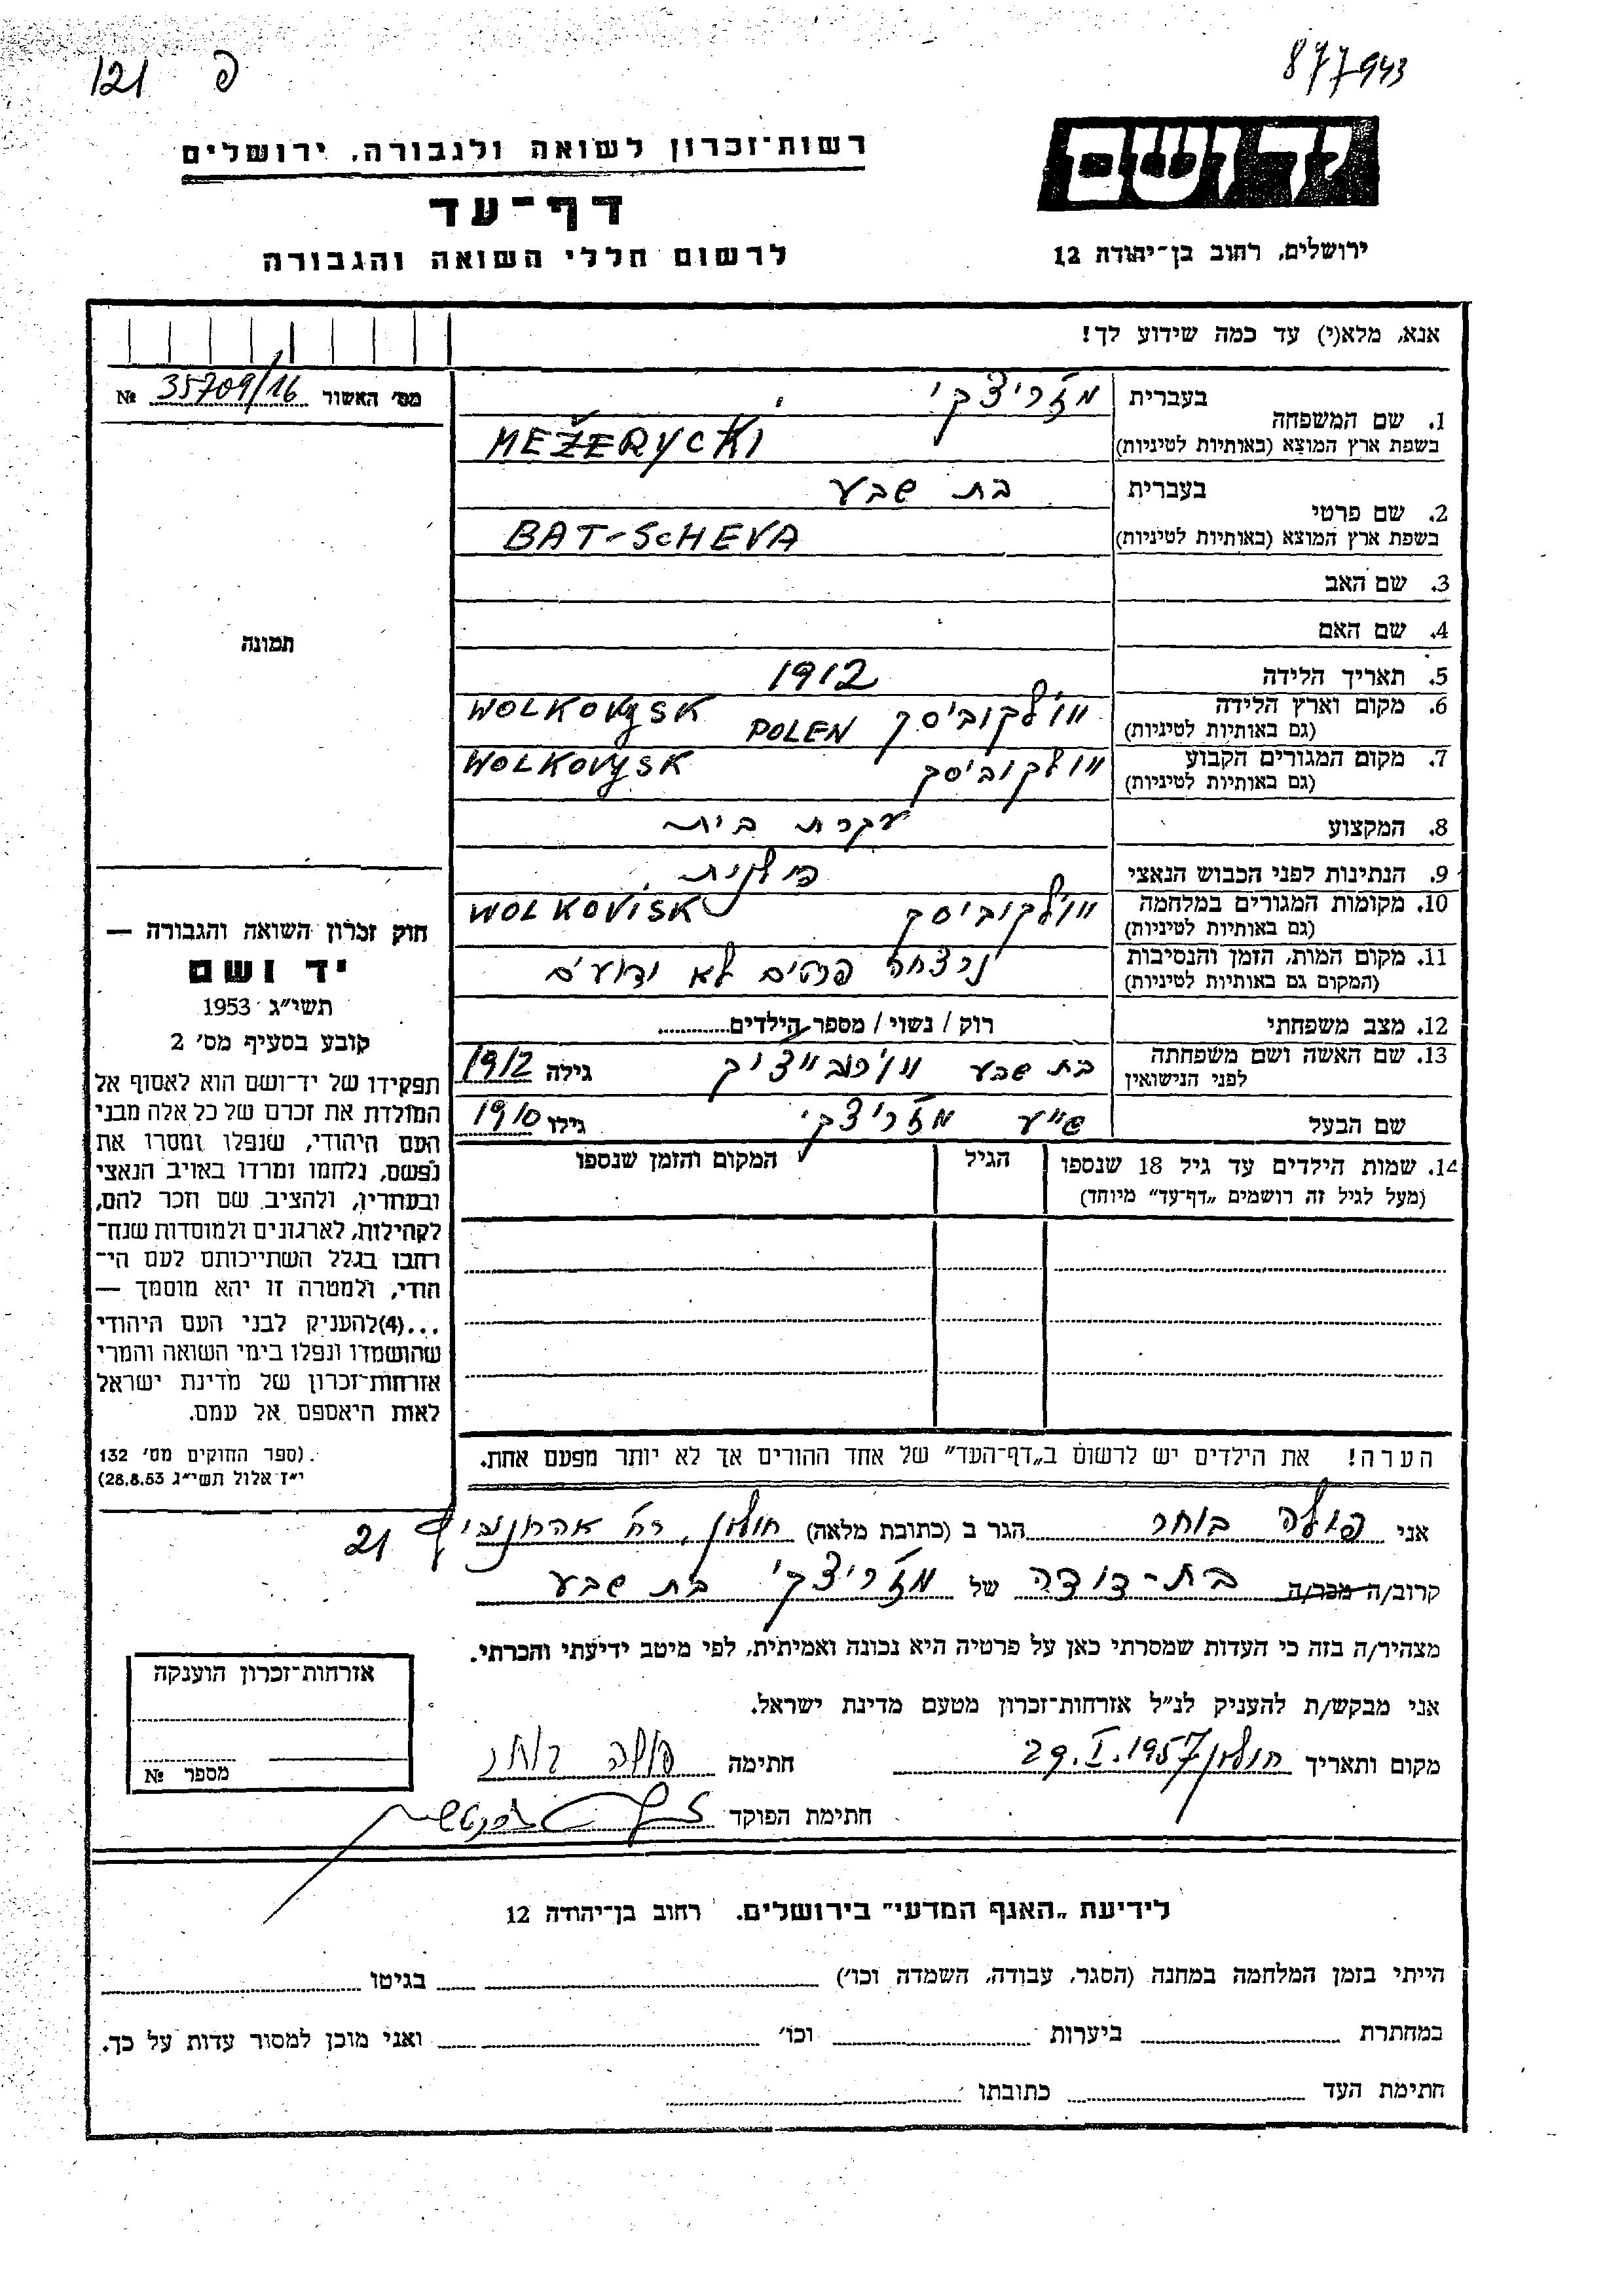 פ 121
877943
יד ושם
רשות-זכרון לשואה ולגבורה, ירושלים
דף-עד
לרשום חללי השואה והגבורה
ירושלים, רחוב בן-יהודה 12
אנא, מלא(י) עד כמה שידוע לך!
מס' האשור 35709/16 №
1. שם המשפחה בעברית מזריצקי
בשפת ארץ המוצא (באותיות לטיניות) MEŽERYCKI
2. שם פרטי בעברית בת שבע
בשפת ארץ המוצא (באותיות לטיניות) BAT-SCHEVA
3. שם האב
4. שם האם
5. תאריך הלידה 1912
6. מקום וארץ הלידה (גם באותיות לטיניות) וולקוביסק POLEN WOLKOVYSK
7. מקום המגורים הקבוע (גם באותיות לטיניות) וולקוביסק WOLKOVYSK
8. המקצוע עקרת בית
9. הנתינות לפני הכבוש הנאצי פולנית
10. מקומות המגורים במלחמה (גם באותיות לטיניות) וולקוביסק WOLKOVISK
11. מקום המות, הזמן והנסיבות (המקום גם באותיות לטיניות) נרצחה פרטים לא ידועים
12. מצב משפחתי רוק / נשוי / מספר הילדים
13. שם האשה ושם משפחתה לפני הנישואין בת שבע גילה 1912
שם הבעל שייע מזריצקי גילו 1910
14. שמות הילדים עד גיל 18 שנספו הגיל המקום והזמן שנספו
(מעל לגיל זה רושמים „דף-עד" מיוחד)
הערה! את הילדים יש לרשום ב„דף-העד" של אחד ההורים אך לא יותר מפעם אחת.
תמונה
חוק זכרון השואה והגבורה —
יד ושם
תשי"ג 1953
קובע בסעיף מס' 2
תפקידו של יד-ושם הוא לאסוף אל
המולדת את זכרם של כל אלה מבני
העם היהודי, שנפלו ומסרו את
נפשם, נלחמו ומרדו באויב הנאצי
ובעוזריו, ולהציב שם וזכר להם,
לקהילות, לארגונים ולמוסדות שנח-
רבו בגלל השתייכותם לעם הי-
הודי, ולמטרה זו יהא מוסמך —
...(4)להעניק לבני העם היהודי
שהושמדו ונפלו בימי השואה והמרי
אזרחות-זכרון של מדינת ישראל
לאות היאספם אל עמם.
(ספר החוקים מס' 132
י"ז אלול תשי"ג 28.8.53)
אני פולה בוחר הגר ב (כתובת מלאה) חולון, רח' אהרונוביץ 21
קרוב/ה מכר/ה בת-דודה של מזריצקי בת שבע
מצהיר/ה בזה כי העדות שמסרתי כאן על פרטיה היא נכונה ואמיתית, לפי מיטב ידיעתי והכרתי.
אני מבקש/ת להעניק לנ"ל אזרחות-זכרון מטעם מדינת ישראל.
מקום ותאריך חולון 29.I.1957 חתימה פולה בוחר
חתימת הפוקד
אזרחות-זכרון הוענקה
מספר №
לידיעת „האגף המדעי" בירושלים. רחוב בן-יהודה 12
הייתי בזמן המלחמה במחנה (הסגר, עבודה, השמדה וכו') בגיטו
במחתרת ביערות וכו' ואני מוכן למסור עדות על כך.
חתימת העד כתובתו